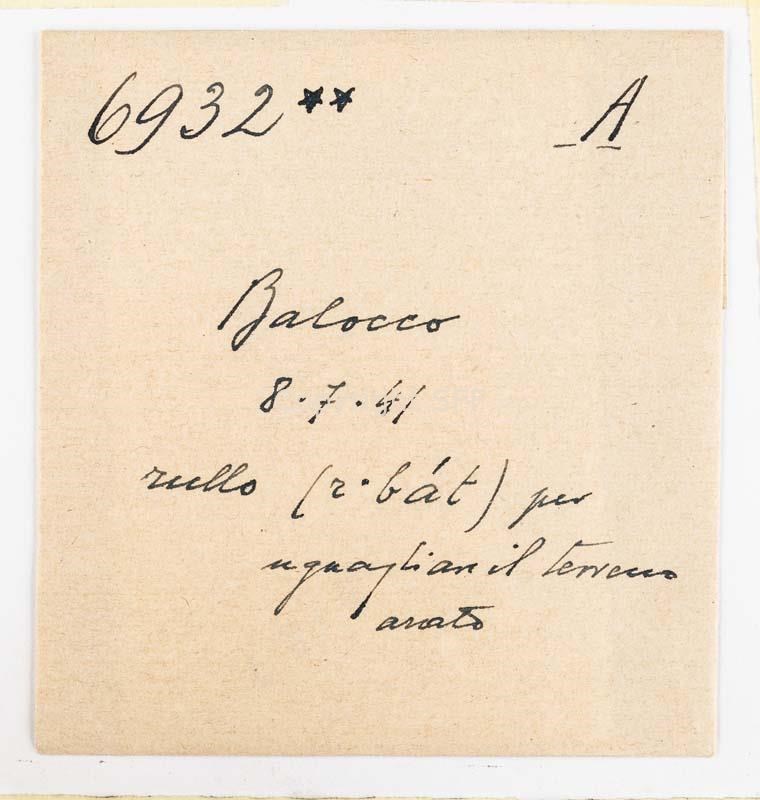 6932** A
Balocco
8.7.41
rullo (r·bát) per
uguagliar il terreno
arato